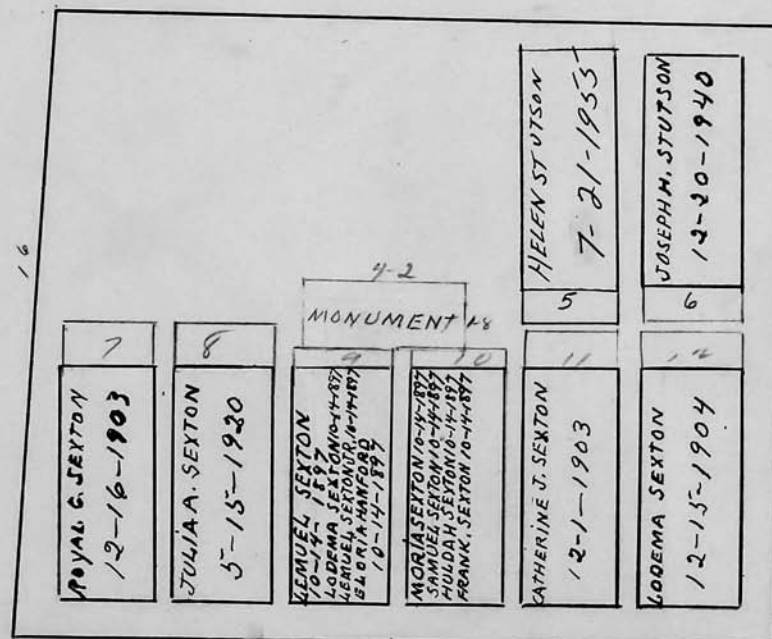 16
HELEN STUTSON
7-21-1955
5
JOSEPH H. STUTSON
12-20-1940
6
4-2
MONUMENT 1-8
7
ROYAL C. SEXTON
12-16-1903
8
JULIA A. SEXTON
5-15-1920
9
LEMUEL SEXTON
10-14-1897
LODEMA SEXTON 10-14-1897
LEMUEL SEXTON JR. 10-14-1897
GLORIA HANFORD
10-14-1897
10
MORIA SEXTON 10-14-1897
SAMUEL SEXTON 10-14-1897
HULDAH SEXTON 10-14-1897
FRANK. SEXTON 10-14-1897
11
KATHERINE J. SEXTON
12-1-1903
12
LODEMA SEXTON
12-15-1904